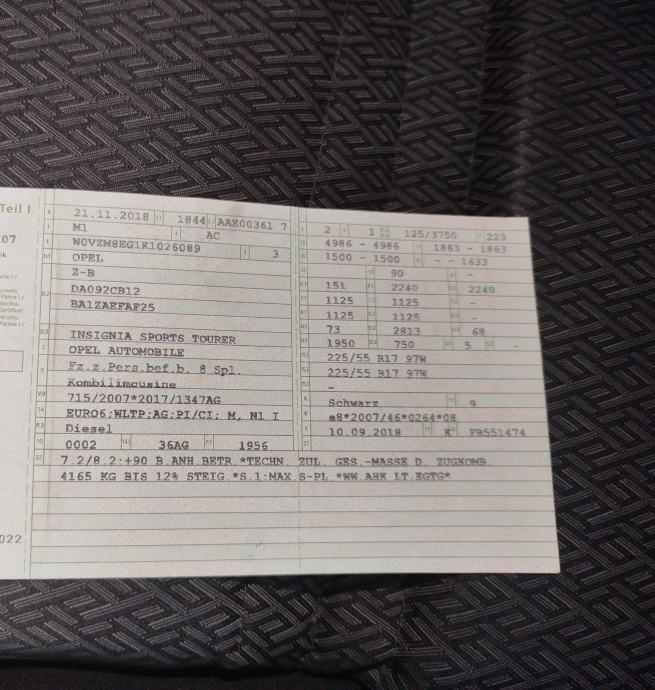 Teil I
21.11.2018 1844 AAK00361 7
M1 AC
W0VZM8EG1K1026089 3
OPEL
Z-B
DA092CB12
BA1ZAEFAF25
INSIGNIA SPORTS TOURER
OPEL AUTOMOBILE
Fz.z.Pers.bef.b. 8 Spl.
Kombilimousine
715/2007*2017/1347AG
EURO6;WLTP;AG;PI/CI; M, N1 I
Diesel
0002 36AG 1956
2 1 125/3750 223
4986 - 4986 1863 - 1863
1500 - 1500 - - 1633
90 -
151 2240 2240
1125 1125 -
1125 1125 -
73 2813 68
1950 750 5 -
225/55 R17 97W
225/55 R17 97W
-
Schwarz 9
e8*2007/46*0264*08
10.09.2018 K FB551474
7.2/8.2:+90 B.ANH.BETR.*TECHN. ZUL. GES.-MASSE D. ZUGKOMB.
4165 KG BIS 12% STEIG.*S.1:MAX S-PL.*WW.AHK LT.EGTG*
07
022